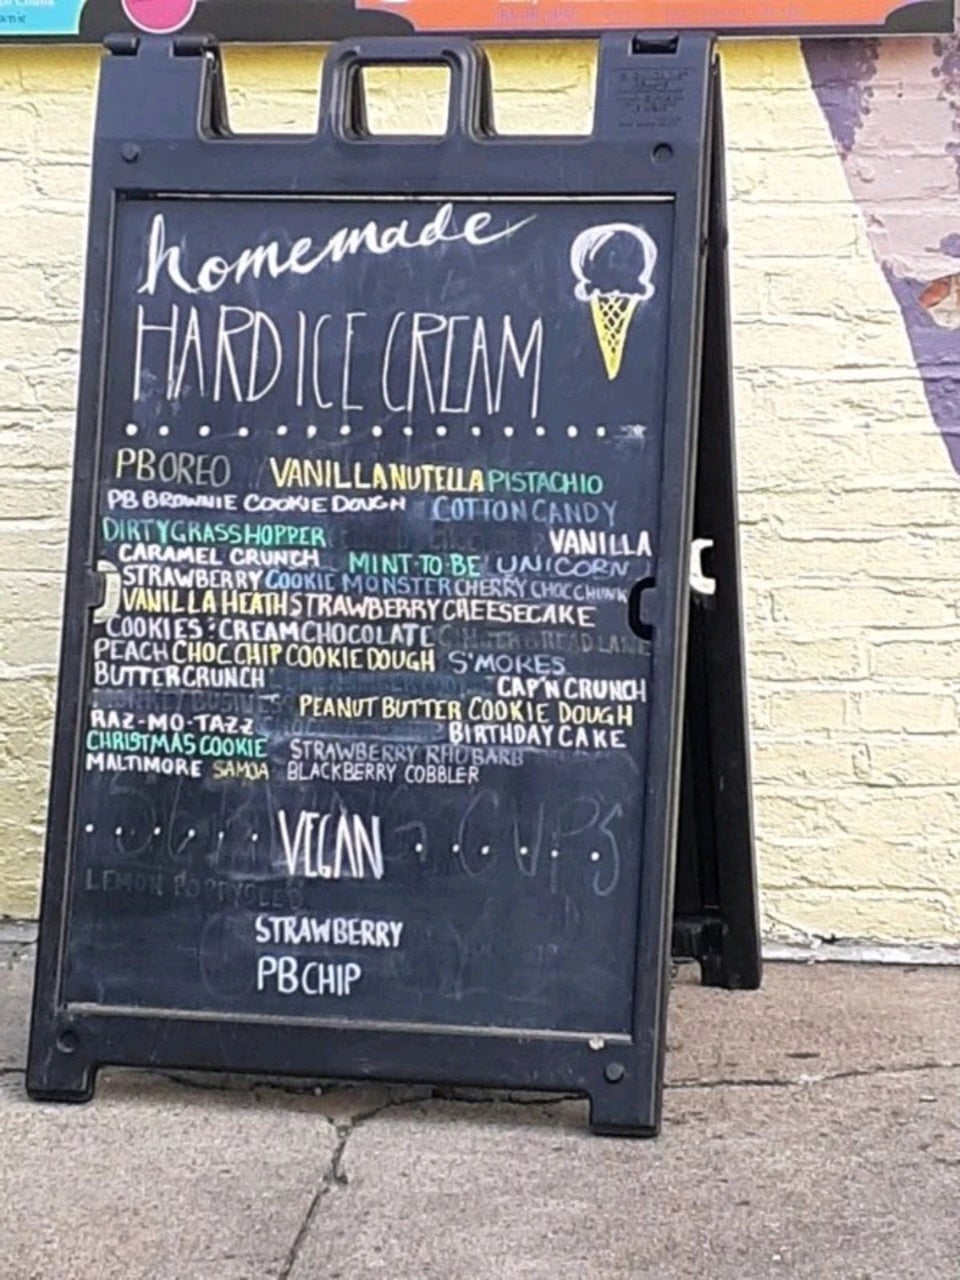 homemade
HARD ICE CREAM
PB OREO VANILLA NUTELLA PISTACHIO
PB BROWNIE COOKIE DOUGH COTTON CANDY
DIRTY GRASSHOPPER VANILLA
CARAMEL CRUNCH MINT-TO-BE UNICORN
STRAWBERRY COOKIE MONSTER CHERRY CHOC CHUNK
VANILLA HEATH STRAWBERRY CHEESECAKE
COOKIES : CREAM CHOCOLATE
PEACH CHOC.CHIP COOKIE DOUGH S'MORES
BUTTERCRUNCH CAP'N CRUNCH
PEANUT BUTTER COOKIE DOUGH
RAZ-MO-TAZZ BIRTHDAY CAKE
CHRISTMAS COOKIE STRAWBERRY RHUBARB
MALTIMORE SAMOA BLACKBERRY COBBLER
VEGAN
LEMON POPPYSEED
STRAWBERRY
PB CHIP